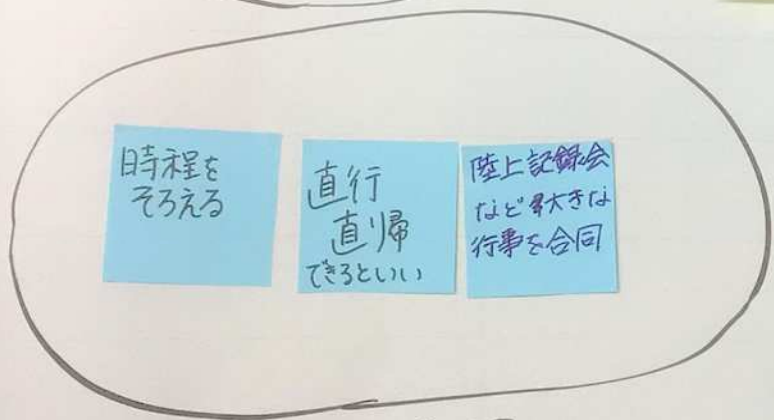 時程を
そろえる
直行
直帰
できるといい
陸上記録会
など大きな
行事を合同